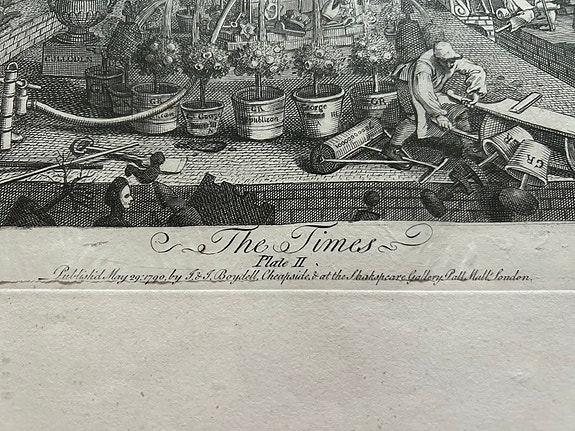 CULLODEN
GR
Republican
George
GR
Republican
George
III
GR
GR
GR
The Times
Plate II.
Publish'd May 29, 1790, by J. & J. Boydell, Cheapside, & at the Shakspeare Gallery Pall Mall London.